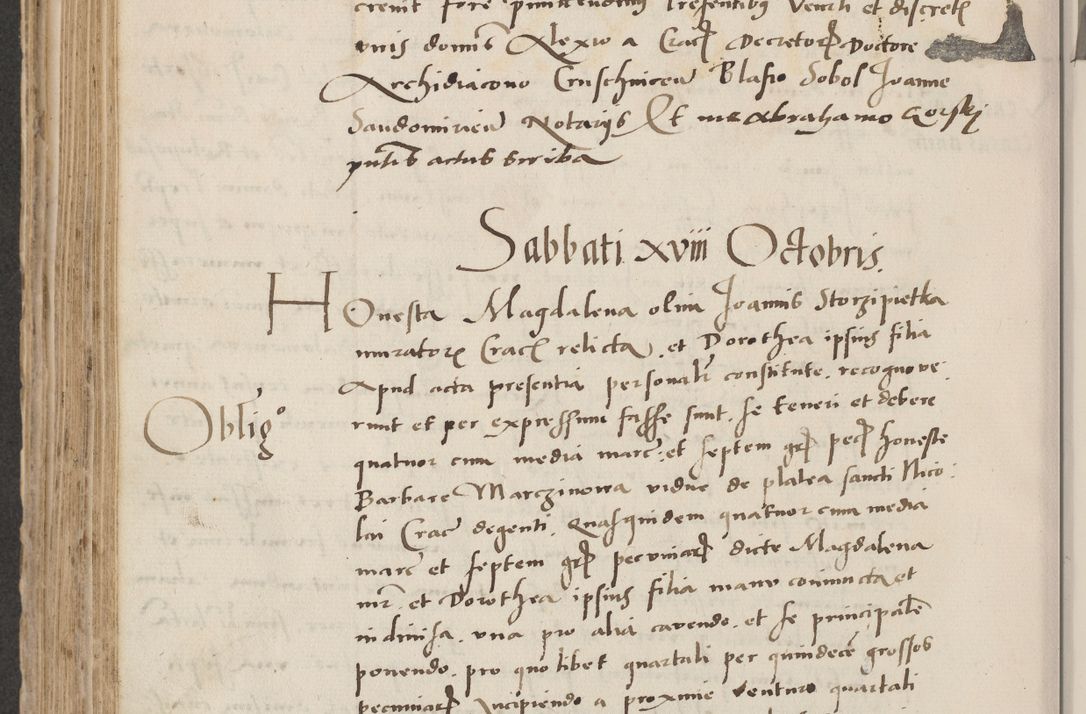 crevit fore permittendum presentibus Venerli et discretis
viris dominis Alexio a Crac decretorum Doctore
Archidiacono Cruschnicen Blasio Sobol Joanne
Sandomirien Notarys Et me Abrahamo Gorskj
pntis actus scriba
Sabbati xviii Octobris
HOnesta Magdalena olim Joannis Storzipietka
muratoris Crac relicta, et Dorothea ipsius filia
Apud acta presentia personalr constitute, recognove
runt et per expressum fasse sunt, se teneri et debere
Oblig
quatuor cum media marc, et septem gr pec honeste
Barbare Marczinowa vidue de platea sancti Nico
lai Crac degenti, Quasquidem quatuor cum media
marc et septem gr pecuniar dicte Magdalena
mr, et Dorothea ipsius filia manu coniuncta et
indivisa, una pro alia cavendo, et se principalem
ponendo, pro quolibet quartali per quindecem grossos
pecuniar Incipiendo a proxime venturo quartali